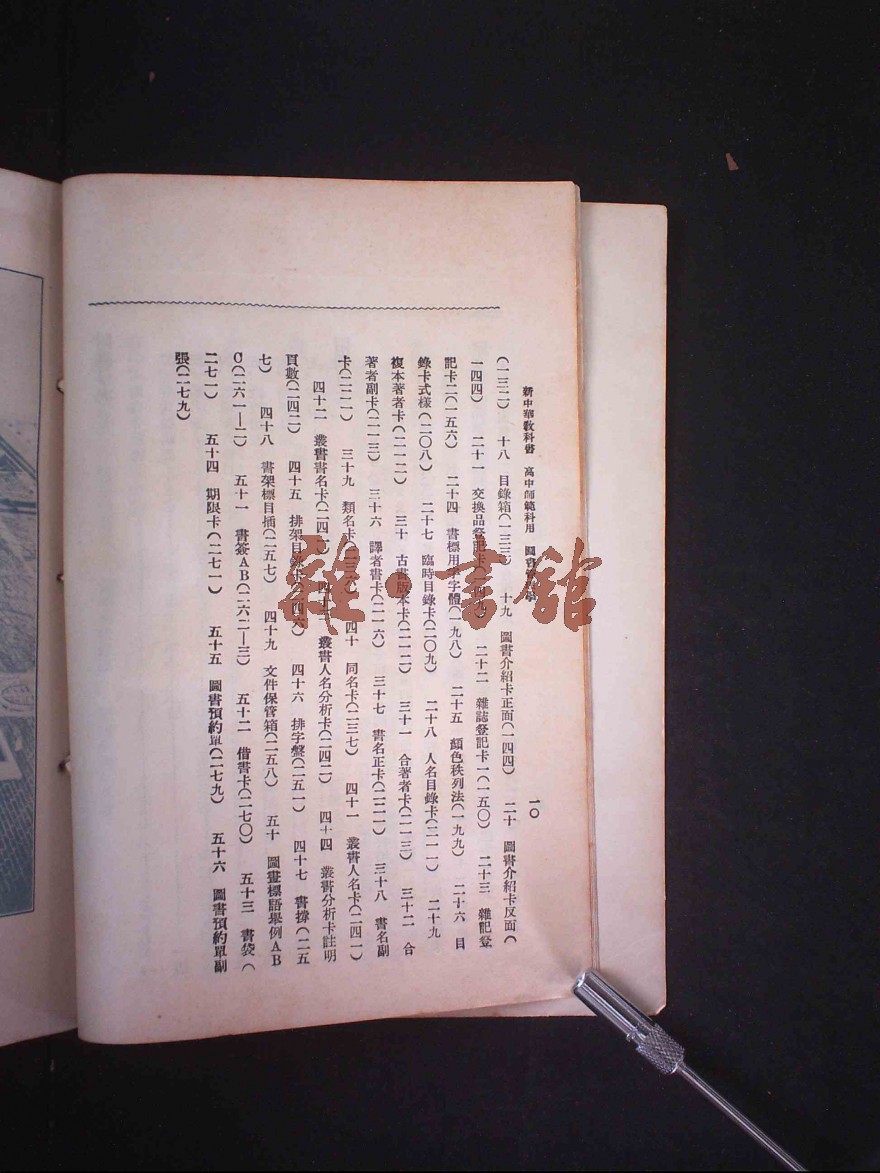 新中華教科書　高中師範科用　圖書　一〇
(一三二)　十八　目錄箱(一三三)　十九　圖書介紹卡正面(一四四)　二十　圖書介紹卡反面(
一四四)　二十一　交換品登記卡(一四九)　二十二　雜誌登記卡一(一五〇)　二十三　雜記登
記卡二(一五六)　二十四　書標用字體(一九八)　二十五　顏色秩列法(一九九)　二十六　目
錄卡式樣(二〇八)　二十七　臨時目錄卡(二〇九)　二十八　人名目錄卡(二一一)　二十九
複本著者卡(二一二)　三十　古書版本卡(二一二)　三十一　合著者卡(二一三)　三十二　合
著者副卡(二一三)　三十六　譯者書卡(二一六)　三十七　書名正卡(二二一)　三十八　書名副
卡(二二一)　三十九　類名卡(二三六)　四十　同名卡(二三七)　四十一　叢書人名卡(二四一)
四十二　叢書書名卡(二四一)　四十三　叢書人名分析卡(二四二)　四十四　叢書分析卡註明
頁數(二四二)　四十五　排架目錄卡(二四六)　四十六　排字盤(二五一)　四十七　書撐(二五
七)　四十八　書架標目插(二五七)　四十九　文件保管箱(二五八)　五十　圖畫標語舉例AB
C(二六一—二)　五十一　書簽AB(二六二—三)　五十二　借書卡(二七〇)　五十三　書袋(
二七一)　五十四　期限卡(二七一)　五十五　圖書預約單(二七九)　五十六　圖書預約單副
張(二七九)
雜·書館